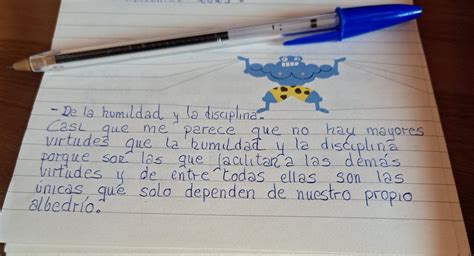 - De la humildad y la disciplina.
Casi que me parece que no hay mayores
virtudes que la humildad y la disciplina
porque son las que facilitan a las demás
virtudes y de entre todas ellas son las
únicas que solo dependen de nuestro propio
albedrío.